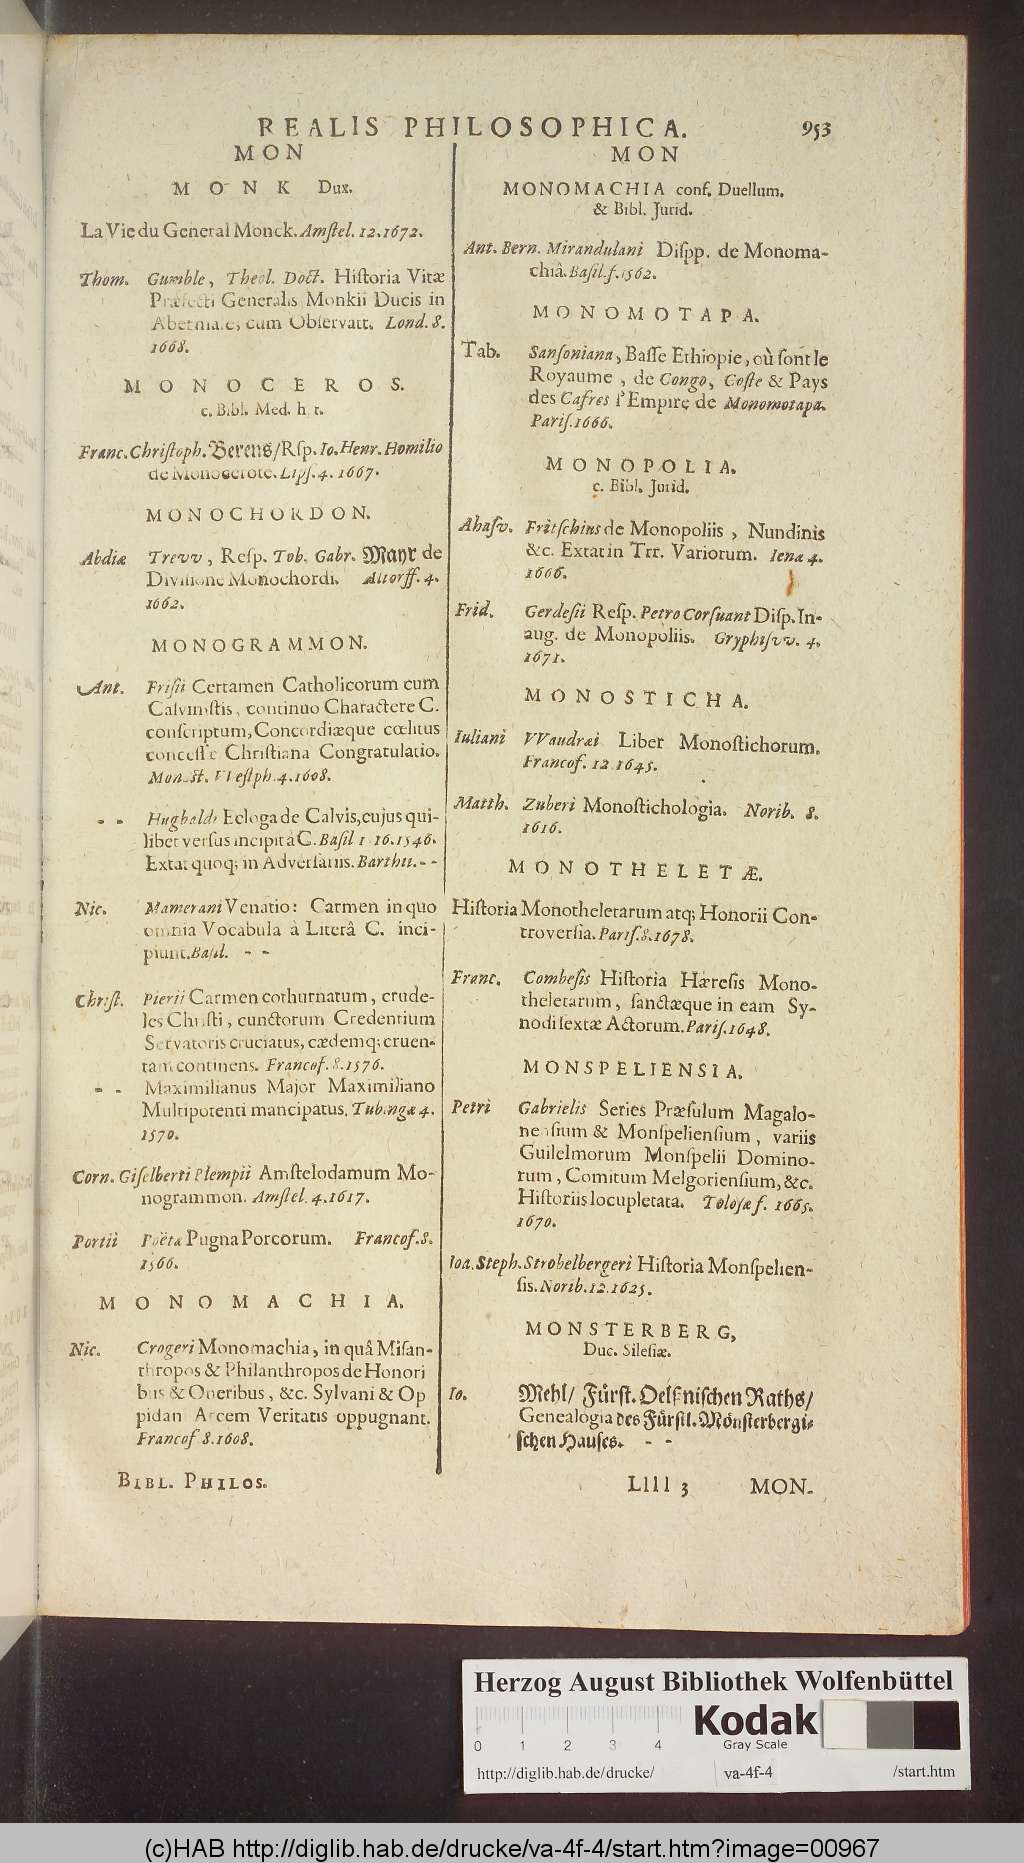 REALIS PHILOSOPHICA. 953
MON
MONK Dux.
La Vie du General Monck. Amſtel. 12. 1672.
Thom. Gumble, Theol. Doct. Hiſtoria Vitæ
Præfecti Generalis Monkii Ducis in
cum Obſervatt. Lond. 8.
1668.
MONOCEROS.
c. Bibl. Med. h. t.
Franc. Chriſtoph. Berens/ Rſp. Io. Henr. Homilio
de Monocerote. Lipſ. 4. 1667.
MONOCHORDON.
Abdiæ Trevv, Reſp. Tob. Gabr. Mayr de
Diviſione Monochordi. Altorff. 4.
1662.
MONOGRAMMON.
Ant. Friſii Certamen Catholicorum cum
Calviniſtis, continuo Charactere C.
conſcriptum, Concordiæque cœlitus
conceſſæ Chriſtiana Congratulatio.
Monaſt. VVeſtph. 4. 1608.
- - Hugbaldi Ecloga de Calvis, cujus qui-
libet verſus incipit à C. Baſil 1 16. 1546.
Extat quoq; in Adverſariis. Barthii. - -
Nic. Mamerani Venatio: Carmen in quo
omnia Vocabula à Literâ C. inci-
piunt. Baſil. - -
Chriſt. Pierii Carmen cothurnatum, crude-
les Chriſti, cunctorum Credentium
Servatoris cruciatus, cædemq; cruen-
tam continens. Francof. 8. 1576.
- - Maximilianus Major Maximiliano
Multipotenti mancipatus. Tubingæ 4.
1570.
Corn. Giſelberti Plempii Amſtelodamum Mo-
nogrammon. Amſtel. 4. 1617.
Portii Poëtæ Pugna Porcorum. Francof. 8.
1566.
MONOMACHIA.
Nic. Crogeri Monomachia, in quâ Miſan-
thropos & Philanthropos de Honori
bus & Oneribus, &c. Sylvani & Op
pidani Arcem Veritatis oppugnant.
Francof 8. 1608.
BIBL. PHILOS.
MON
MONOMACHIA conf. Duellum.
& Bibl. Jurid.
Ant. Bern. Mirandulani Diſpp. de Monoma-
chiâ. Baſil. f. 1562.
MONOMOTAPA.
Tab. Sanſoniana, Baſſe Ethiopie, où ſont le
Royaume, de Congo, Coſte & Pays
des Cafres l'Empire de Monomotapa.
Pariſ. 1666.
MONOPOLIA.
c. Bibl. Jurid.
Ahaſv. Fritſchius de Monopoliis, Nundinis
&c. Extat in Trr. Variorum. Ienæ 4.
1666.
Frid. Gerdeſii Reſp. Petro Corſuant Diſp. In-
aug. de Monopoliis. Gryphiſvv. 4.
1671.
MONOSTICHA.
Iuliani VVaudræi Liber Monoſtichorum.
Francof. 12. 1645.
Matth. Zuberi Monoſtichologia. Norib. 8.
1616.
MONOTHELETÆ.
Hiſtoria Monotheletarum atq; Honorii Con-
troverſia. Pariſ. 8. 1678.
Franc. Combeſis Hiſtoria Hæreſis Mono-
theletarum, ſanctæque in eam Sy-
nodi ſextæ Actorum. Pariſ. 1648.
MONSPELIENSIA.
Petri Gabrielis Series Præſulum Magalo-
nenſium & Monſpelienſium, variis
Guilelmorum Monſpelii Domino-
rum, Comitum Melgorienſium, &c.
Hiſtoriis locupletata. Toloſæ f. 1665.
1670.
Ioa. Steph. Strobelbergeri Hiſtoria Monſpelien-
ſis. Norib. 12. 1625.
MONSTERBERG,
Duc. Sileſiæ.
Io. Mehl/ Fürſt. Oelſniſchen Raths/
Genealogia des Fürſtl. Mönſterbergi-
ſchen Hauſes. - -
Llll 3 MON.
Herzog August Bibliothek Wolfenbüttel
0 1 2 3 4
Kodak
Gray Scale
http://diglib.hab.de/drucke/ va-4f-4 /start.htm
(c)HAB http://diglib.hab.de/drucke/va-4f-4/start.htm?image=00967